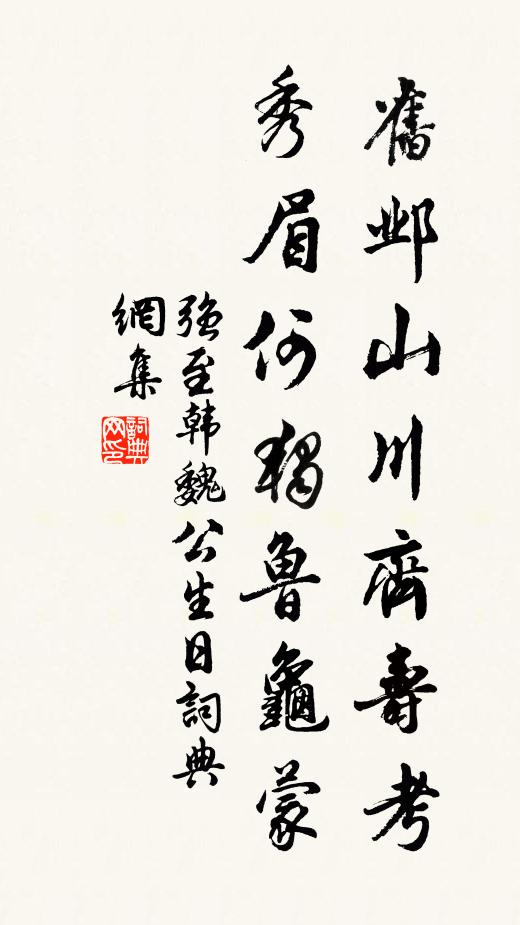 舊邺山川齊壽考
秀眉何獨魯龜蒙
强至韩魏公生日詞典
網集
詞典
网印